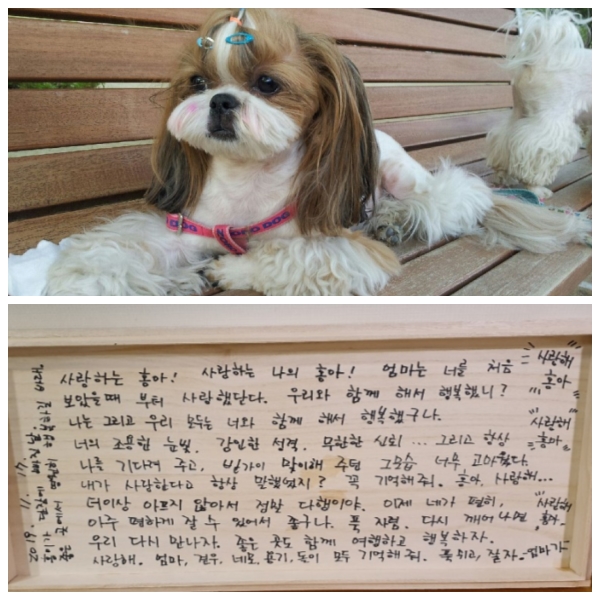 사랑하는 홍아! 사랑하는 나의 홍아! 엄마는 너를 처음
보았을때 부터 사랑했단다. 우리와 함께 해서 행복했니?
나는 그리고 우리 모두는 너와 함께 해서 행복했구나.
너의 조용한 눈빛, 강인한 성격, 무한한 신뢰... 그리고 항상
나를 기다려 주고, 반가이 맞이해 주던 그모습 너무 고마웠다.
내가 사랑한다고 항상 말했었지? 꼭 기억해줘. 홍아, 사랑해...
더이상 아프지 않아서 정말 다행이야. 이제 네가 편히,
아주 편하게 잘 수 있어서 좋구나. 푹 자렴. 다시 깨어나면
우리 다시 만나자. 좋은 곳도 함께 여행하고 행복하자.
사랑해. 엄마, 모두 기억해줘. 푹 쉬고, 잘자. -엄마가
사랑해
홍아
사랑해
홍아
사랑해
홍아.